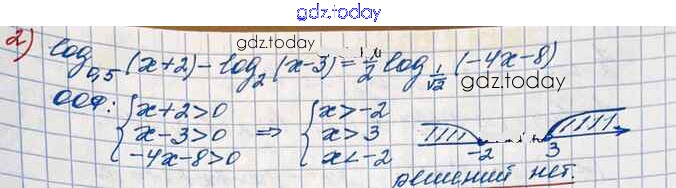 gdz.today
2) log₀,₅ (x+2) - log₂ (x-3) = 1/2 log_{1/√2} (-4x-8)
gdz.today
gdz.today
ООФ: { x+2>0 => { x>-2
x-3>0 x>3
-4x-8>0 x<-2
-2 3
решений нет.